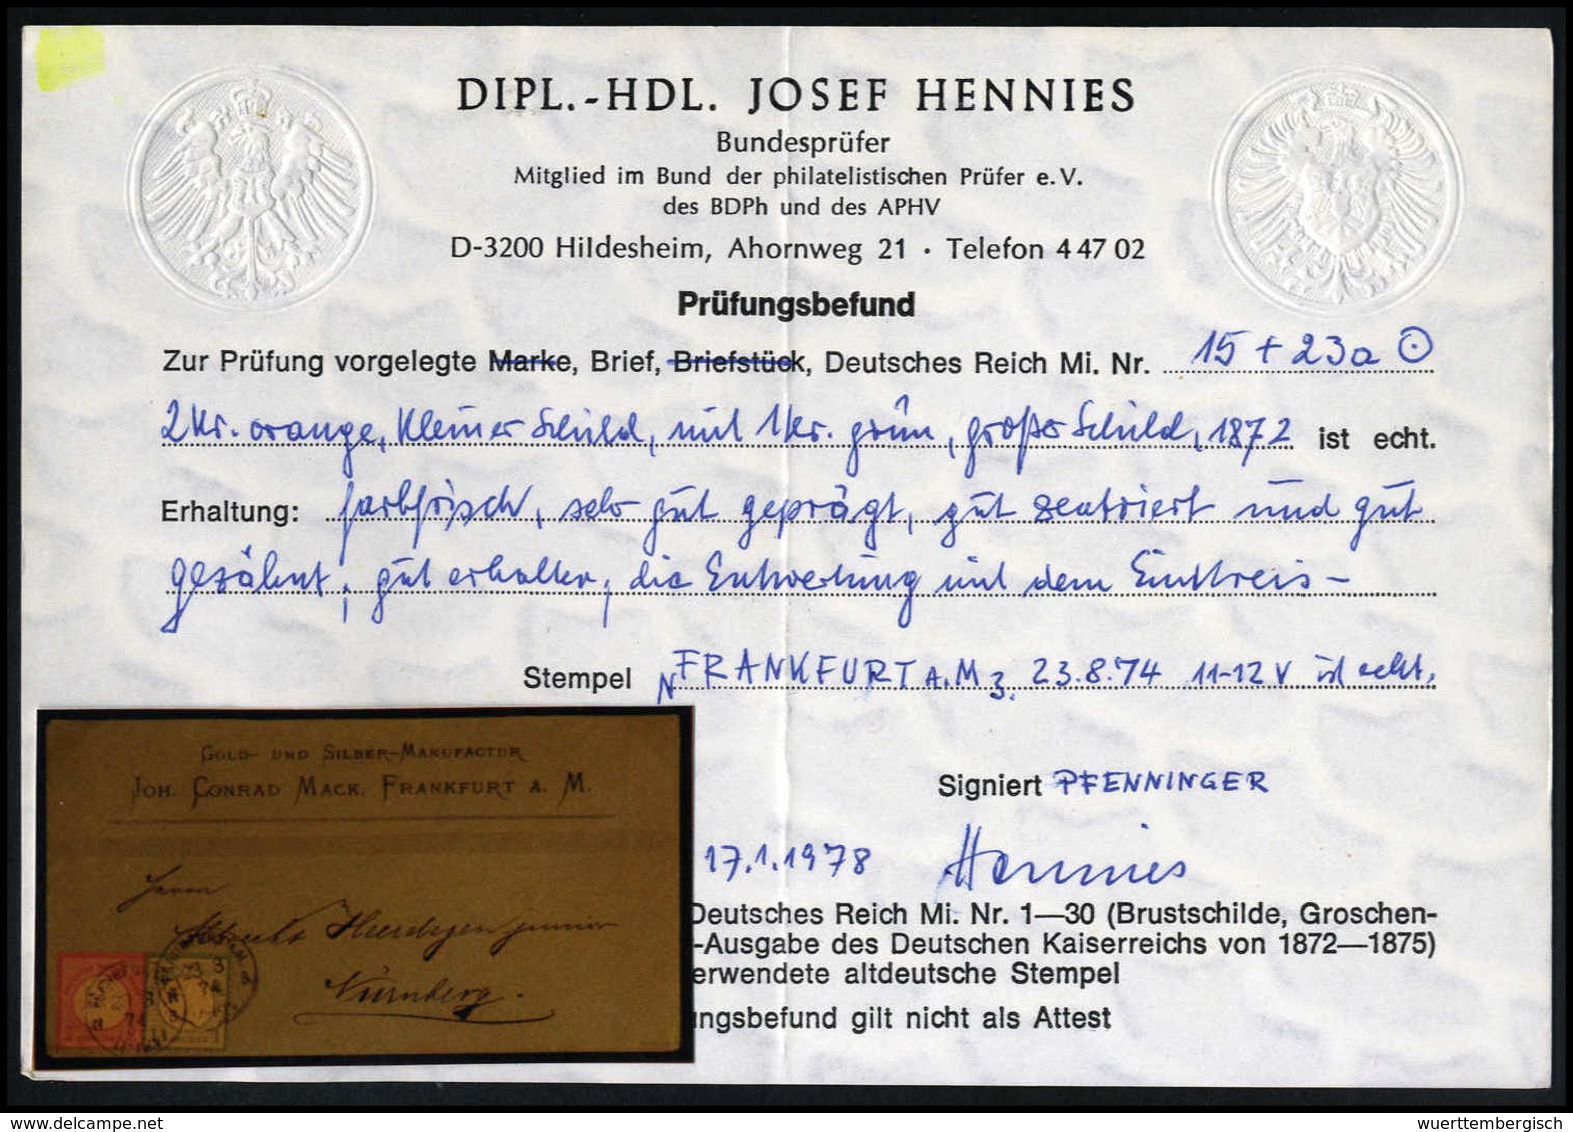 DIPL.-HDL. JOSEF HENNIES
Bundesprüfer
Mitglied im Bund der philatelistischen Prüfer e. V.
des BDPh und des APHV
D-3200 Hildesheim, Ahornweg 21 · Telefon 4 47 02
Prüfungsbefund
Zur Prüfung vorgelegte Marke, Brief, Briefstück, Deutsches Reich Mi. Nr. 15 + 23a ⊙
2 Kr. orange, kleiner Schild, mit 1 Kr. grün, großer Schild, 1872 ist echt.
Erhaltung: farbfrisch, sehr gut geprägt, gut zentriert und gut
gezähnt, gut erhalten, die Entwertung mit dem Einkreis-
Stempel FRANKFURT A. M 3. 23.8.74 11-12 V ist echt.
Signiert PFENNINGER
17.1.1978 Hennies
Deutsches Reich Mi. Nr. 1—30 (Brustschilde, Groschen-
-Ausgabe des Deutschen Kaiserreichs von 1872—1875)
erwendete altdeutsche Stempel
ngsbefund gilt nicht als Attest
GOLD- UND SILBER-MANUFACTUR
JOH. CONRAD MACK, FRANKFURT A. M.
Herrn
Heerdegen junior
Nürnberg.
wuerttembergisch